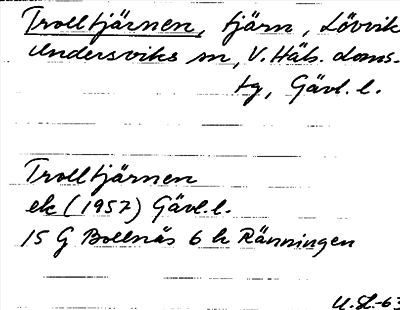 Trolltjärnen, tjärn, Lövvik
Undersviks sn, V. Häls. doms.
tg, Gävl. l.
Trolltjärnen
ek (1957) Gävl.l.
15 G Bollnäs 6 h Ränningen
U.SL.-63